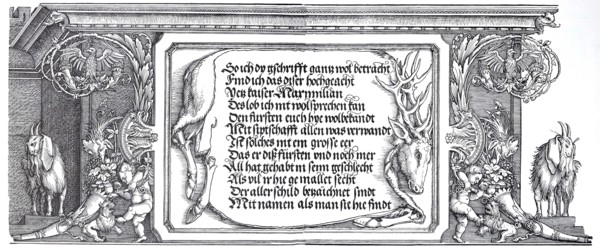 So ich dy gschrifft gantz wol betracht
Find ich das diser hochgeacht
Vey kaiser Maxymilian
Des lob ich nit wolsprechen kan
Den fursten euch hye wolbekandt
Mit siptschafft allen was verwandt
Ist solches nit ein grosse eer
Das er diß fürsten vnd noch mer
All hat gehabt in seinn geschlecht
Als vil ir hie ge mallet secht
Der aller schild bezaichnet sindt
Mit namen als man sit hie findt